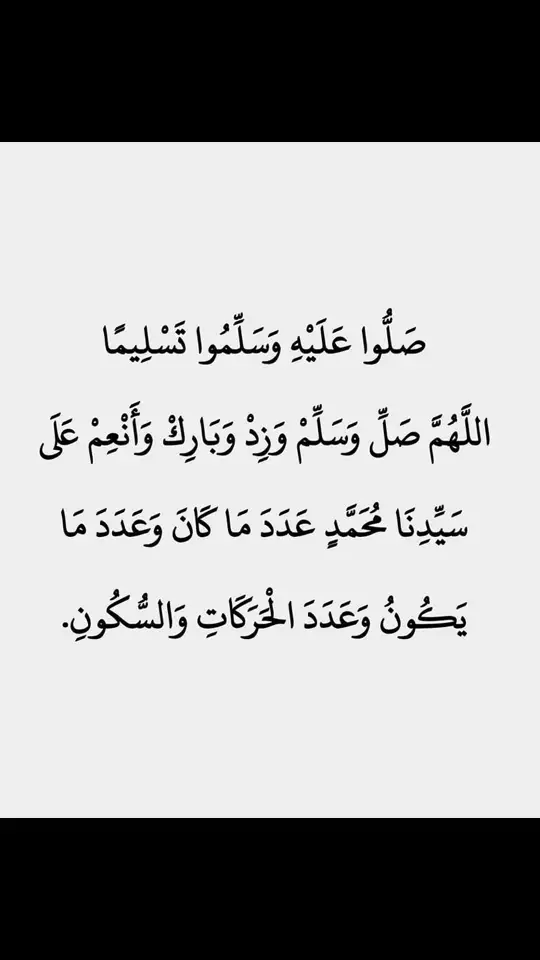 صَلُّوا عَلَيْهِ وَسَلِّمُوا تَسْلِيمًا
اللَّهُمَّ صَلِّ وَسَلِّمْ وَزِدْ وَبَارِكْ وَأَنْعِمْ عَلَى
سَيِّدِنَا مُحَمَّدٍ عَدَدَ مَا كَانَ وَعَدَدَ مَا
يَكُونُ وَعَدَدَ الْحَرَكَاتِ وَالسُّكُونِ.